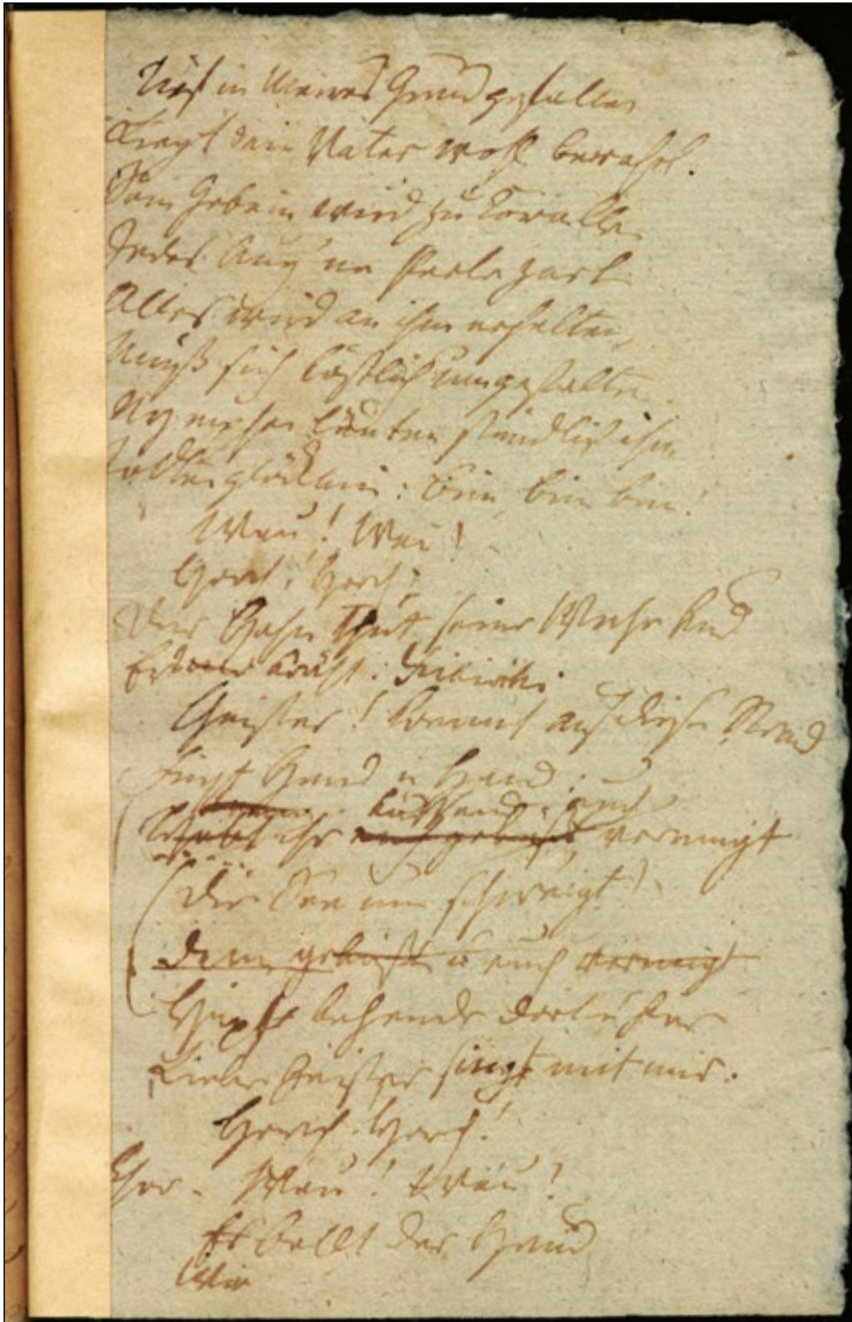 Tief in Meeres Grund gefallen
Liegt dein Vater wohl bewahrt.
Sein Gebein wird zu Coralle
Jedes Aug' ne Perle zart
Alles wird an ihm erhalten
Muß sich köstlich umgestalten
Nymphen läuten stündlich ihm
Todtenglöcklein: bim bim bim!
Wau! Wau!
Horch, horch,
Der Hahn thut seine Wache kund
kräht: Kikiriki
Geister! kommt auf diesen Strand
Hand in Hand
küssend: euch
ihr verneigt
(die See nun schweigt)
Dem geküßt u euch verneigt
Hüpft behende dort u hier
Liebe Geister singt mit mir.
Horch horch!
Chor. Wau! Wau!
Es bellt der Hund
Wau